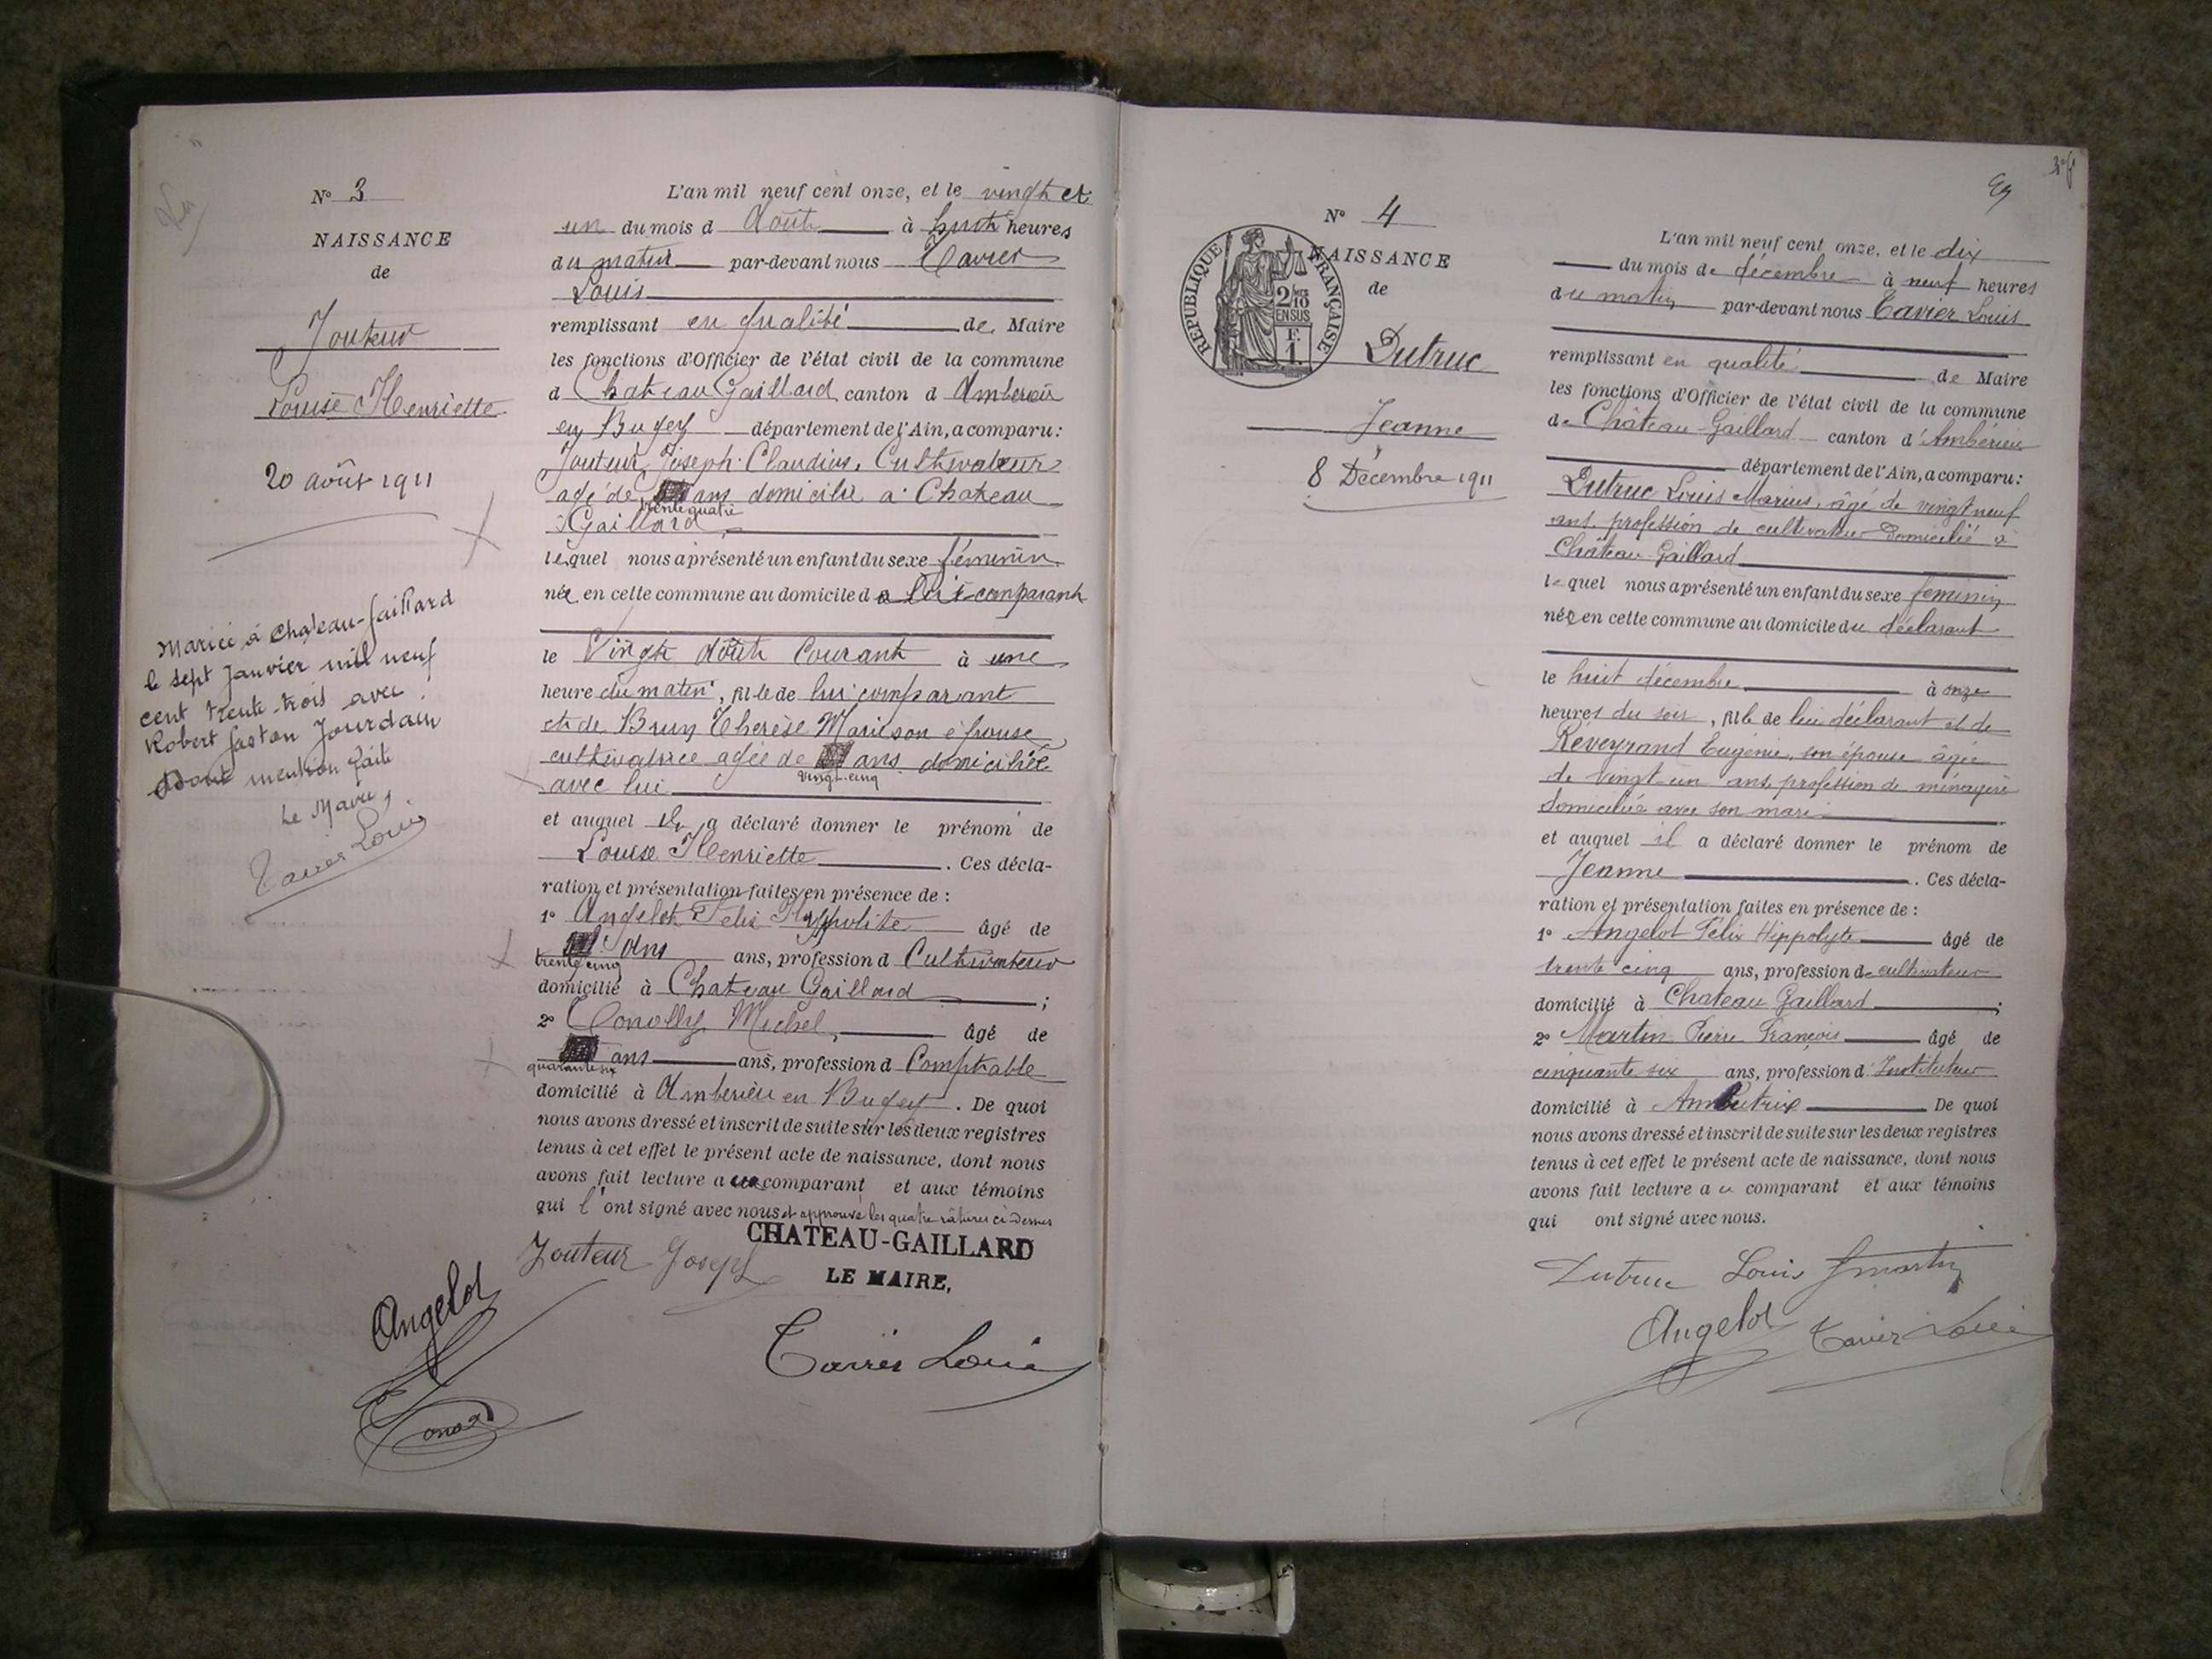 N° 3
NAISSANCE
de
Jouteur
Louise Henriette
20 août 1911
Mariée à Chateau-Gaillard
le sept Janvier mil neuf
cent trente-trois avec
Robert Gaston Jourdain
Dont mention faite
Le Maire,
Tavier Louis
L'an mil neuf cent onze, et le vingt et
un du mois d Août à huit heures
du matin par-devant nous Tavier
Louis
remplissant en qualité de Maire
les fonctions d'Officier de l'état civil de la commune
d Chateau Gaillard canton d Amberieu
en Bugey département de l'Ain, a comparu :
Jouteur Joseph Claudius, Cultivateur
agé de ans domicilié a Chateau
trente quatre
Gaillard
lequel nous a présenté un enfant du sexe féminin
née en cette commune au domicile d e lui comparant
le Vingt Août Courant à une
heure du matin, fille de lui comparant
et de Brun Therèse Marie son épouse
cultivatrice agée de ans domiciliée
vingt-cinq
avec lui
et auquel il a déclaré donner le prénom de
Louise Henriette . Ces décla-
ration et présentation faites en présence de :
1° Angelot Felix Hyppolite âgé de
ans ans, profession d Cultivateur
trente cinq
domicilié à Chateau Gaillard ;
2° Conolly Michel, âgé de
ans ans, profession d Comptable
quarante six
domicilié à Amberieu en Bugey . De quoi
nous avons dressé et inscrit de suite sur les deux registres
tenus à cet effet le présent acte de naissance, dont nous
avons fait lecture a comparant et aux témoins
qui l'ont signé avec nous et approuvé les quatre râtures ci-dessus
CHATEAU-GAILLARD
LE MAIRE,
Jouteur Joseph
Angelot
Tavier Louis
N° 4
NAISSANCE
de
RÉPUBLIQUE FRANÇAISE
2/10
EN SUS
F.
1.
Dutruc
Jeanne
8 Décembre 1911
L'an mil neuf cent onze, et le dix
du mois de décembre à neuf heures
du matin par-devant nous Tavier Louis
remplissant en qualité de Maire
les fonctions d'Officier de l'état civil de la commune
de Château-Gaillard canton d'Ambérieu
département de l'Ain, a comparu :
Dutruc Louis Marius, âgé de vingt neuf
ans, profession de cultivateur domicilié à
Château-Gaillard
lequel nous a présenté un enfant du sexe féminin
née en cette commune au domicile du déclarant
le huit décembre à onze
heures du soir, fille de lui déclarant et de
Réveyrand Eugénie, son épouse âgée
de vingt-un ans, profession de ménagère
domiciliée avec son mari
et auquel il a déclaré donner le prénom de
Jeanne . Ces décla-
ration et présentation faites en présence de :
1° Angelot Félix Hippolyte âgé de
trente cinq ans, profession de cultivateur
domicilié à Chateau Gaillard ;
2° Martin Pierre François âgé de
cinquante six ans, profession d'Instituteur
domicilié à Ambutrix De quoi
nous avons dressé et inscrit de suite sur les deux registres
tenus à cet effet le présent acte de naissance, dont nous
avons fait lecture au comparant et aux témoins
qui ont signé avec nous.
Dutruc Louis Jmartin
Angelot Tavier Louis